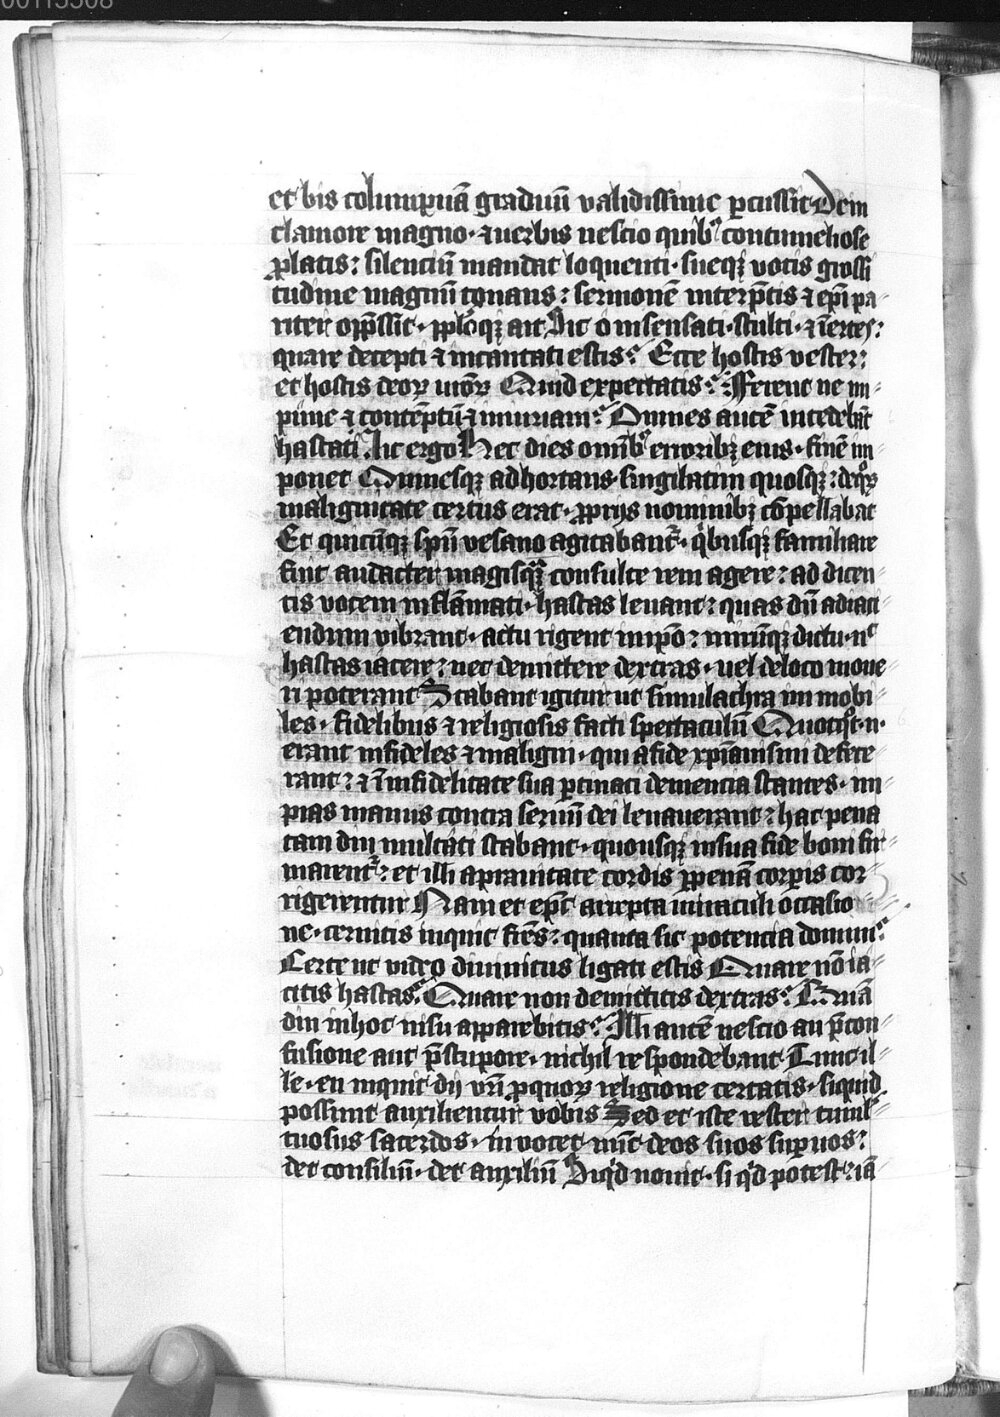 00115508
et bis columpnā graduū validissime ꝑcussit Dein
clamore magno · ⁊ verbis nescio quibꝰ contumeliose
ꝓlatis : silenciū mandat loquenti · sueqꝫ vocis grossi
tudine magnū tonans : sermonē interp̄tis ⁊ ep̄i pa
riter opp̄ssit · pplōqꝫ ait Hic o insensati · stulti · ⁊ īertes :
quare decepti ⁊ incantati estis ? Ecce hostis vester :
et hostis deoꝝ vrōꝝ Quid expectatis ? Feret ne im
pune ⁊ contēptū ⁊ iniuriam ? Omnes autē incedebāt
hastati Hic ergo Hec dies omībꝰ erroribꝫ eius · finē im
ponet Omnesqꝫ adhortans · singilatim quosqꝫ : de qͦꝝ
malignitate certus erat · ꝓprijs nominibꝫ cōpellabat
Et quicūqꝫ spū vesano agitabantᷣ · qͥbusqꝫ familiare
fuit audacter magisqᷓꝫ consulte rem agere : ad dicen
tis vocem inflāmati · hastas leuant : quas dū ad iaci
endum vibrant · actu rigent in ipō : mirūqꝫ dictu · nᶜ
hastas iacere : nec demittere dextras · vel de loco moue
ri poterant Stabant igitur ut simulachra immobi
les · fidelibus ⁊ religiosis facti spectaculū Quotqͦt · n ·
erant infideles ⁊ maligni · qui a fide xp̄ianismi defece
rant : ⁊ ī infidelitate sua ꝑtinaci demencia stantes · im
pias manus contra seruū dei leuauerant : hac pena
tam diu multati stabant · quousqꝫ in sua fide boni fir
marentᷣ : et illi a prauitate cordis ꝓ penā corꝑis cor
rigerentur Nam et ep̄c accepta miraculi occasio
ne · cernitis inquit fr̄es : quanta sit potencia domini ?
Certe ut video diuinitus ligati estis Quare nō ia
citis hastas ? Quare non demittitis dextras ? Quā
diu in hoc nisu apparebitis ? Illi autē nescio an p̄ con
fusione aut p̄ stupore · nichil respondebant Tunc il
le · en inquit dij vr̄i ꝓ quoꝝ religione certatis · si quid
possunt auxilientur vobis Sed et iste vester tumul
tuosus sacerdos · inuocet nūc deos suos suꝑuos :
det consiliū · det auxiliū Si qͥd nouit · si qͥd potest : iā